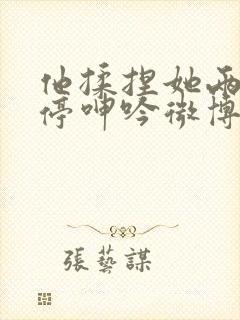 他揉捏她两
停呻吟微博
張藝謀